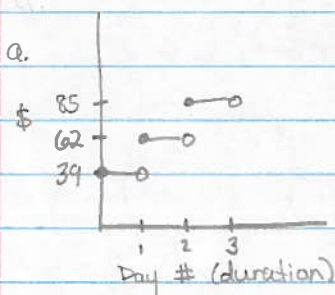 a.
$
85
62
39
1 2 3
Day # (duration)